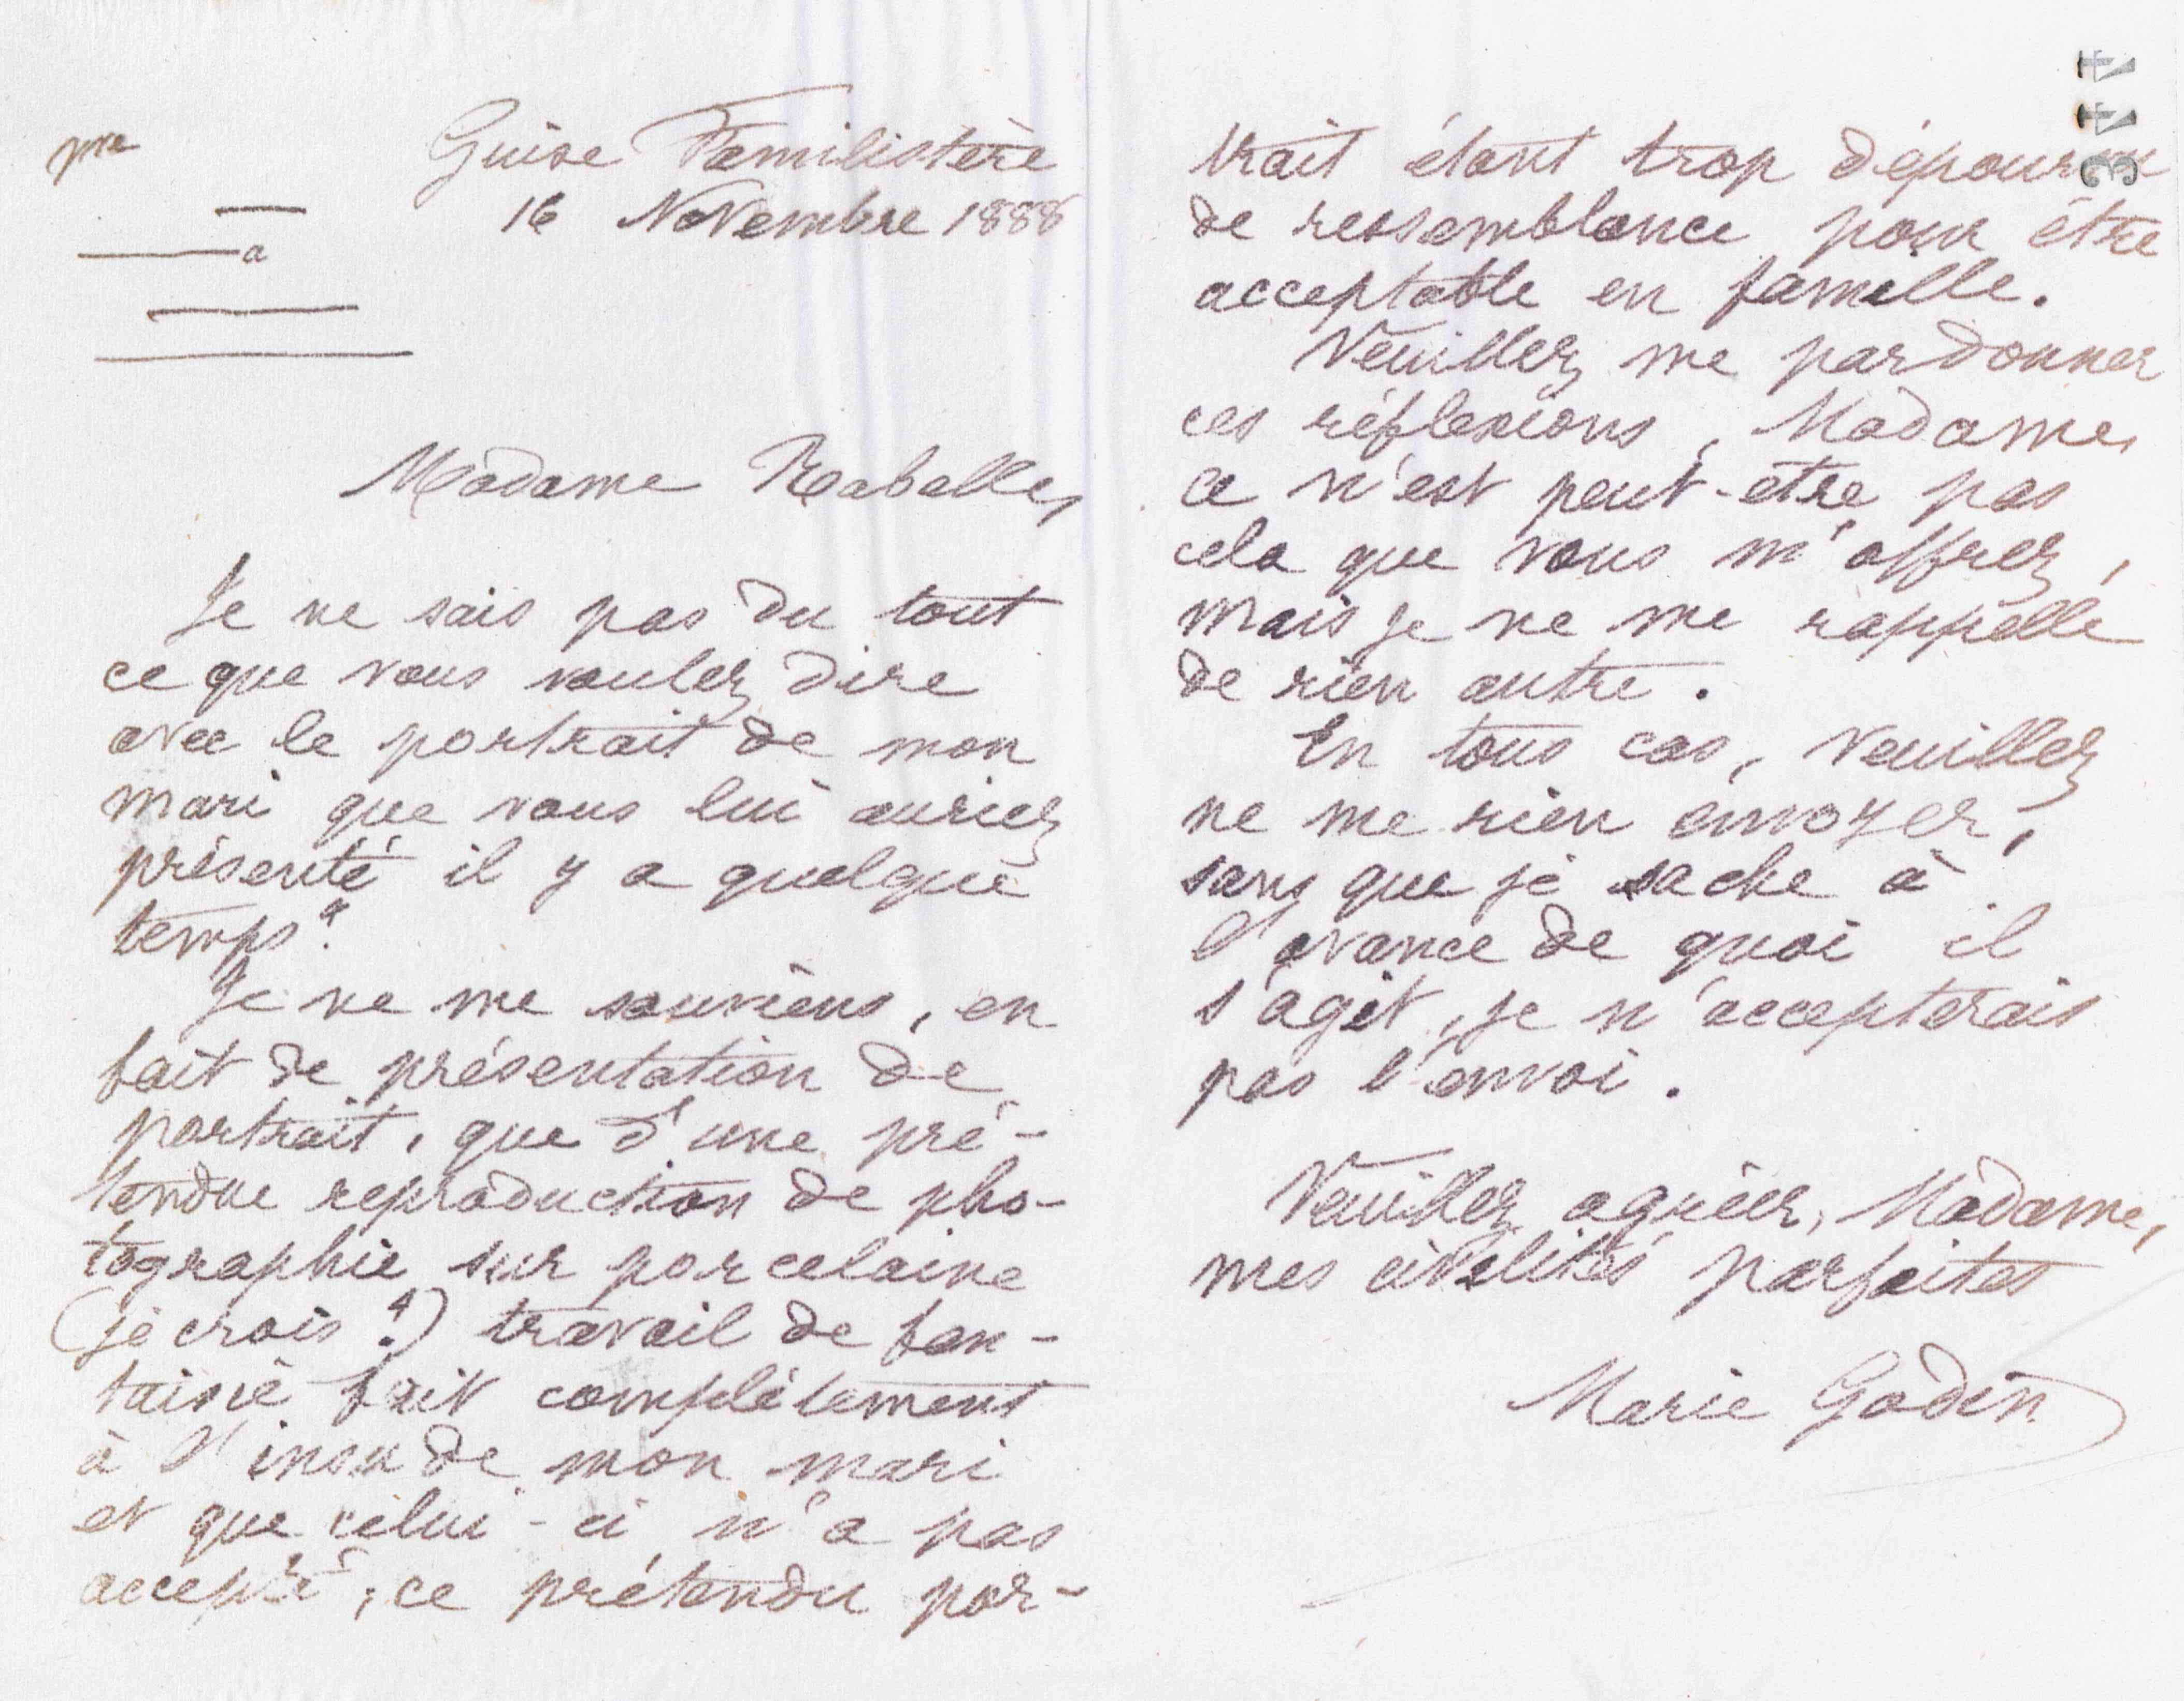 pre
Guise Familistère
16 Novembre 1888
a
Madame Rabelle,
Je ne sais pas du tout
ce que vous voulez dire
avec le portrait de mon
mari que vous lui auriez
présenté il y a quelque
temps ?
Je ne me souviens, en
fait de présentation de
portrait, que d'une pré-
tendue reproduction de pho-
tographie sur porcelaine
(je crois ?) travail de fan-
taisie fait complètement
à l'insu de mon mari
et que celui-ci n'a pas
accepté, ce prétendu por-
344
trait étant trop dépourvu
de ressemblance pour être
acceptable en famille.
Veuillez me pardonner
ces réflexions, Madame,
ce n'est peut-etre pas
cela que vous m'offrez,
mais je ne me rappelle
de rien autre.
En tous cas, veuillez
ne me rien envoyer,
sans que je sache à
l'avance de quoi il
s'agit, je n'accepterais
pas l'envoi.
Veuillez agréer, Madame,
mes civilités parfaites
Marie Godin